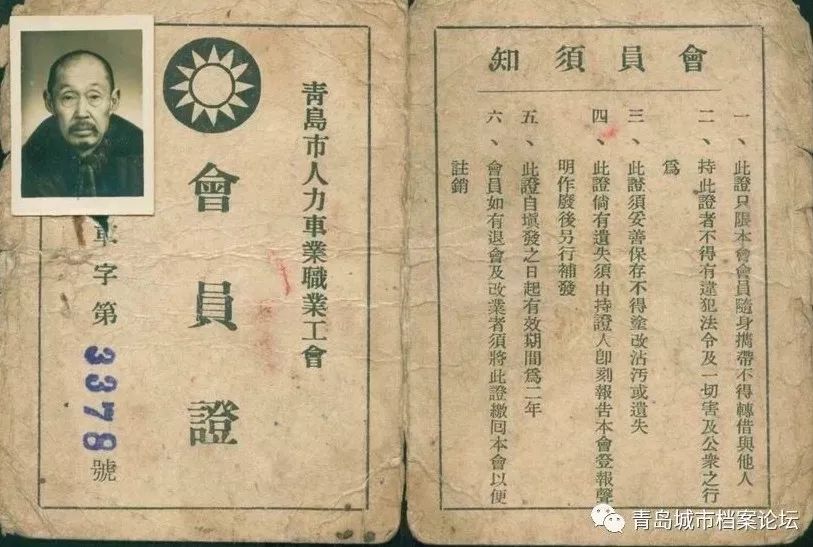 青島市人力車業職業工會
會員證
車字第3378號
會員須知
一、此證只限本會會員隨身攜帶不得轉借與他人
二、持此證者不得有違犯法令及一切害及公衆之行
爲
三、此證須妥善保存不得塗改沾汚或遺失
四、此證倘有遺失須由持證人卽刻報告本會登報聲
明作廢後另行補發
五、此證自塡發之日起有效期間爲二年
六、會員如有退會及改業者須將此證繳回本會以便
註銷
青岛城市档案论坛